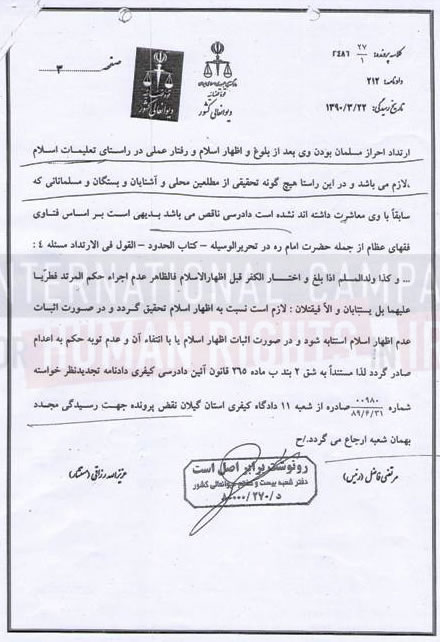 کلاسه پرونده: ۲۷/۱ ۲۴۸۶
دادنامه: ۲۱۲
تاریخ رسیدگی: ۱۳۹۰/۳/۲۲
قوه قضائیه
دیوانعالی کشور
دیوانعالی کشور
صفحه ۳
ارتداد احراز مسلمان بودن وی بعد از بلوغ و اظهار اسلام و رفتار عملی در راستای تعلیمات اسلام
لازم می باشد و در این راستا هیچ گونه تحقیقی از مطلعین محلی و آشنایان و بستگان و مسلمانانی که
سابقاً با وی معاشرت داشته اند نشده است دادرسی ناقص می باشد بدیهی است بر اساس فتاوی
فقهای عظام از جمله حضرت امام ره در تحریرالوسیله – کتاب الحدود – القول فی الارتداد مسئله ۴ :
... و کذا ولدالمسلم اذا بلغ و اختار الکفر قبل اظهارالاسلام فالظاهر عدم اجراء حکم المرتد فطریا
علیهما بل یستتابان و الا فیقتلان : لازم است نسبت به اظهار اسلام تحقیق گردد و در صورت اثبات
عدم اظهار اسلام استتابه شود و در صورت اثبات اظهار اسلام یا با انتفاء آن و عدم توبه حکم به اعدام
صادر گردد لذا مستنداً به شق ۲ بند ب ماده ۲۶۵ قانون آئین دادرسی کیفری دادنامه تجدیدنظر خواسته
شماره ۰۰۹۸۰ ۸۹/۶/۳۱ صادره از شعبه ۱۱ دادگاه کیفری استان گیلان نقض پرونده جهت رسیدگی مجدد
بهمان شعبه ارجاع می گردد./ح
مرتضی فاضل (رئیس)
عزیزالله رزاقی (مستشار)
رونوشت برابر اصل است
دفتر شعبه بیست و هفتم دیوانعالی کشور
INTERNATIONAL CAMPA
FOR HUMAN RIGHTS IN IR